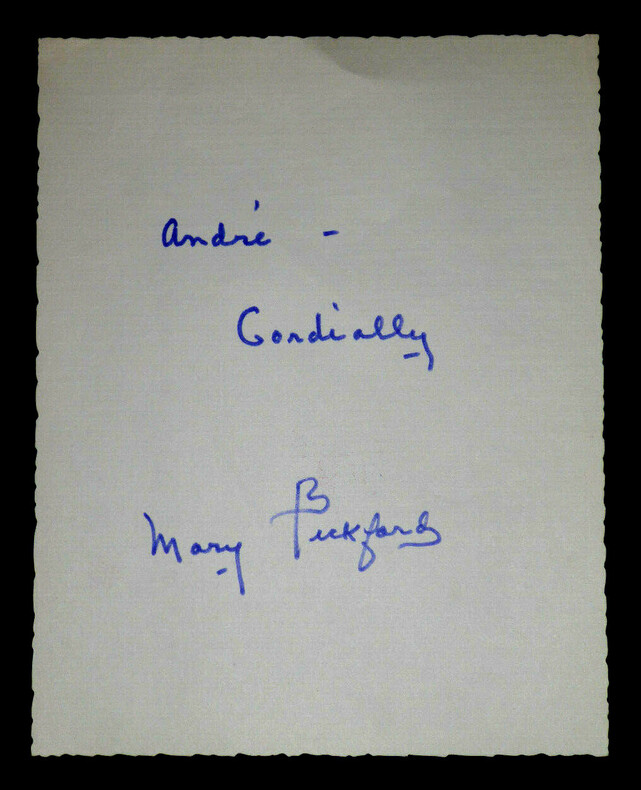 André -
Cordially
Mary Pickford